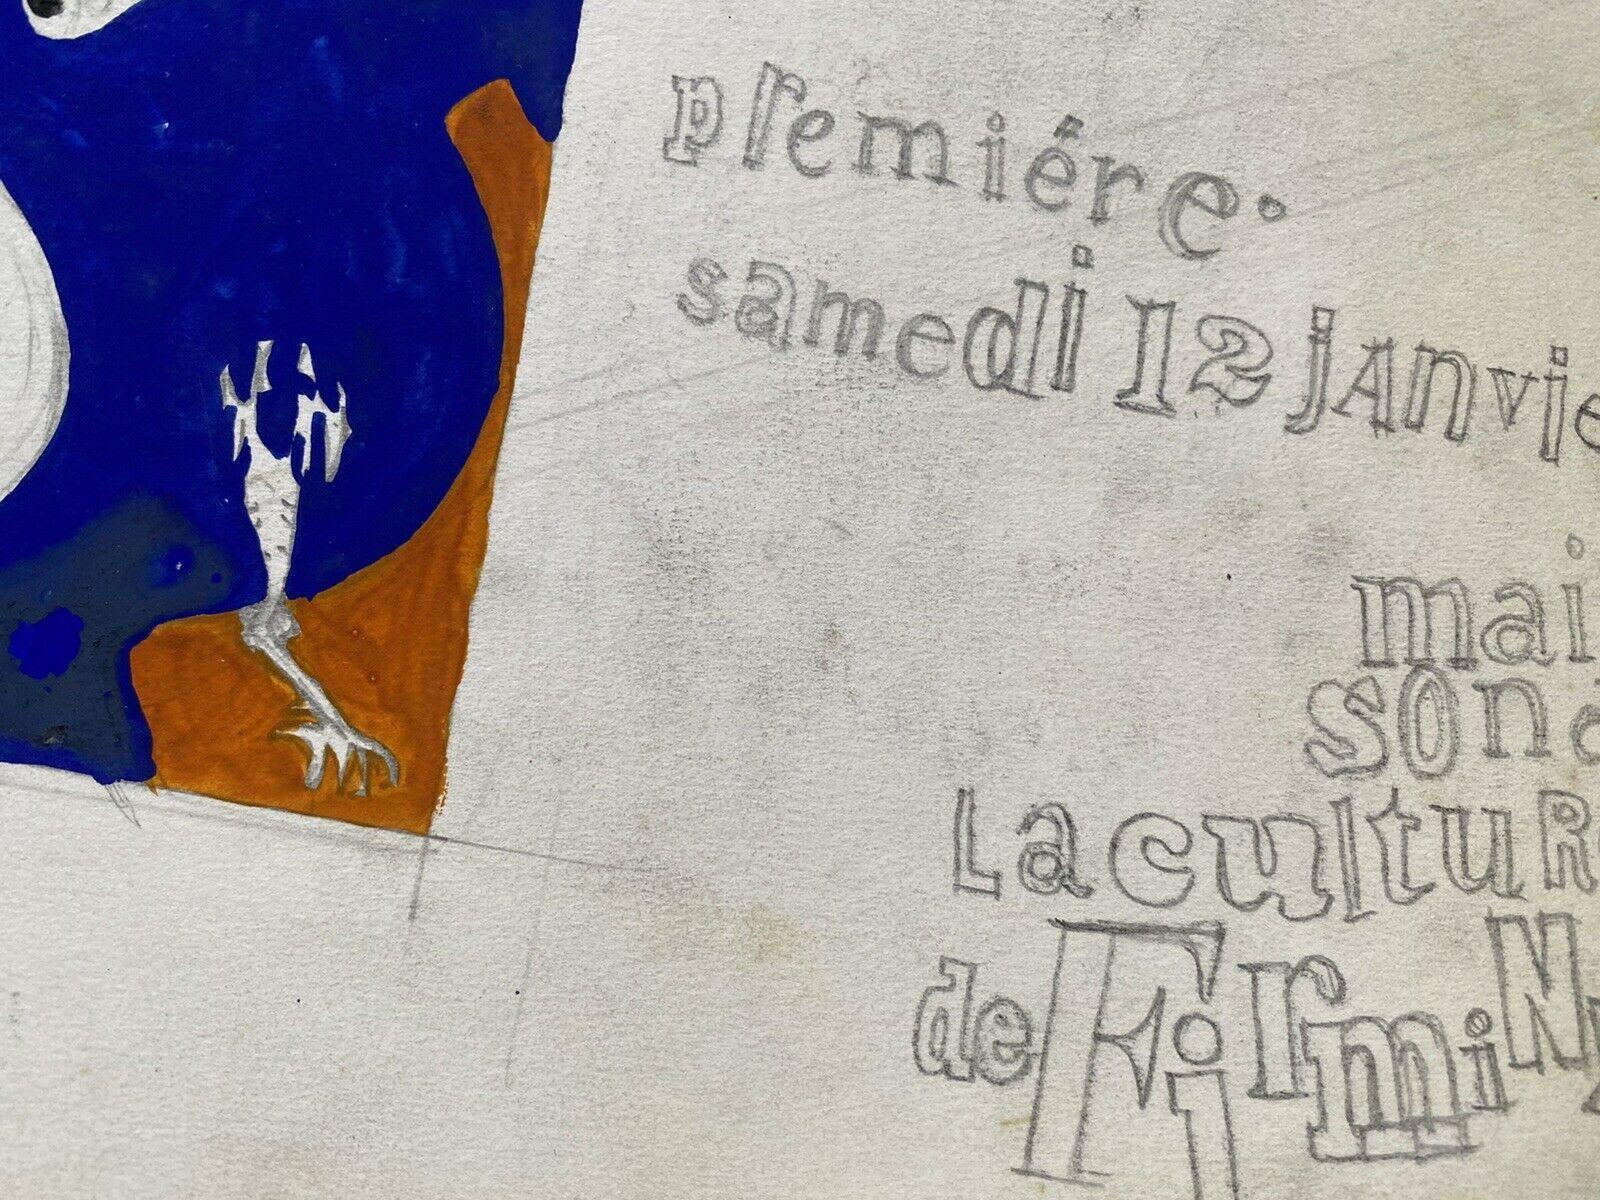 premiére.
samedi 12 jAnvie
mai
son d
La cultuRe
de FirmiNy